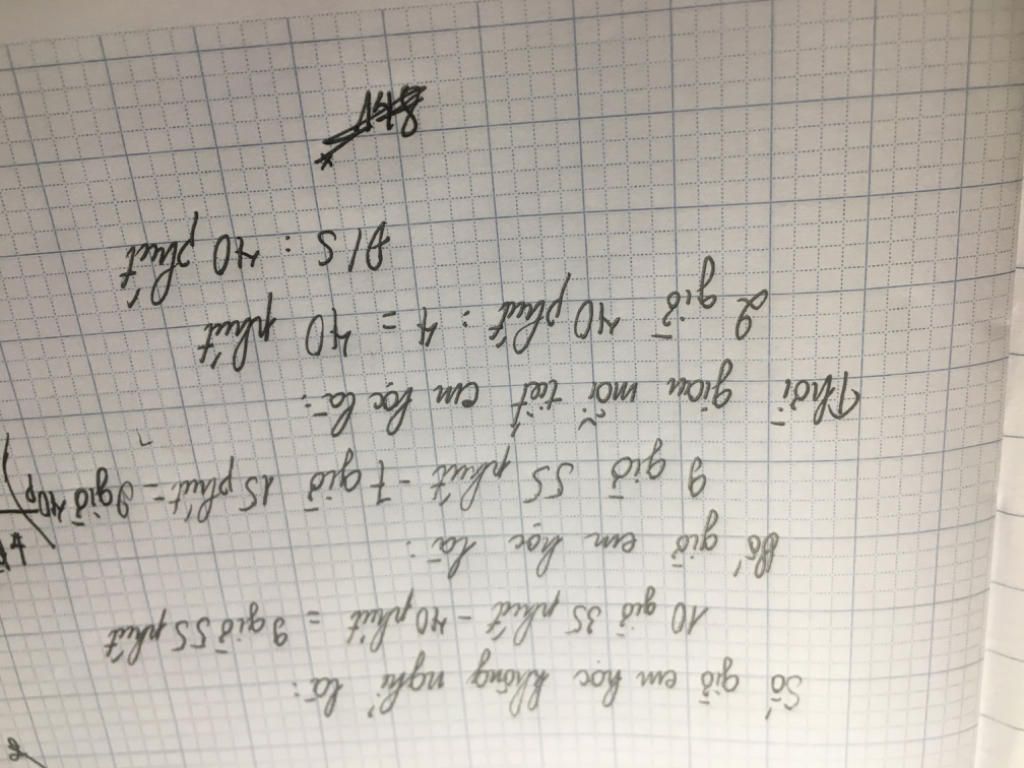 Số giờ em học không nghỉ là:
10 giờ 35 phút - 40 phút = 9 giờ 55 phút
Số giờ em học là:
9 giờ 55 phút - 7 giờ 15 phút = 2 giờ 40p
Thời gian mỗi tiết em học là:
2 giờ 40 phút : 4 = 40 phút
Đ/S : 40 phút